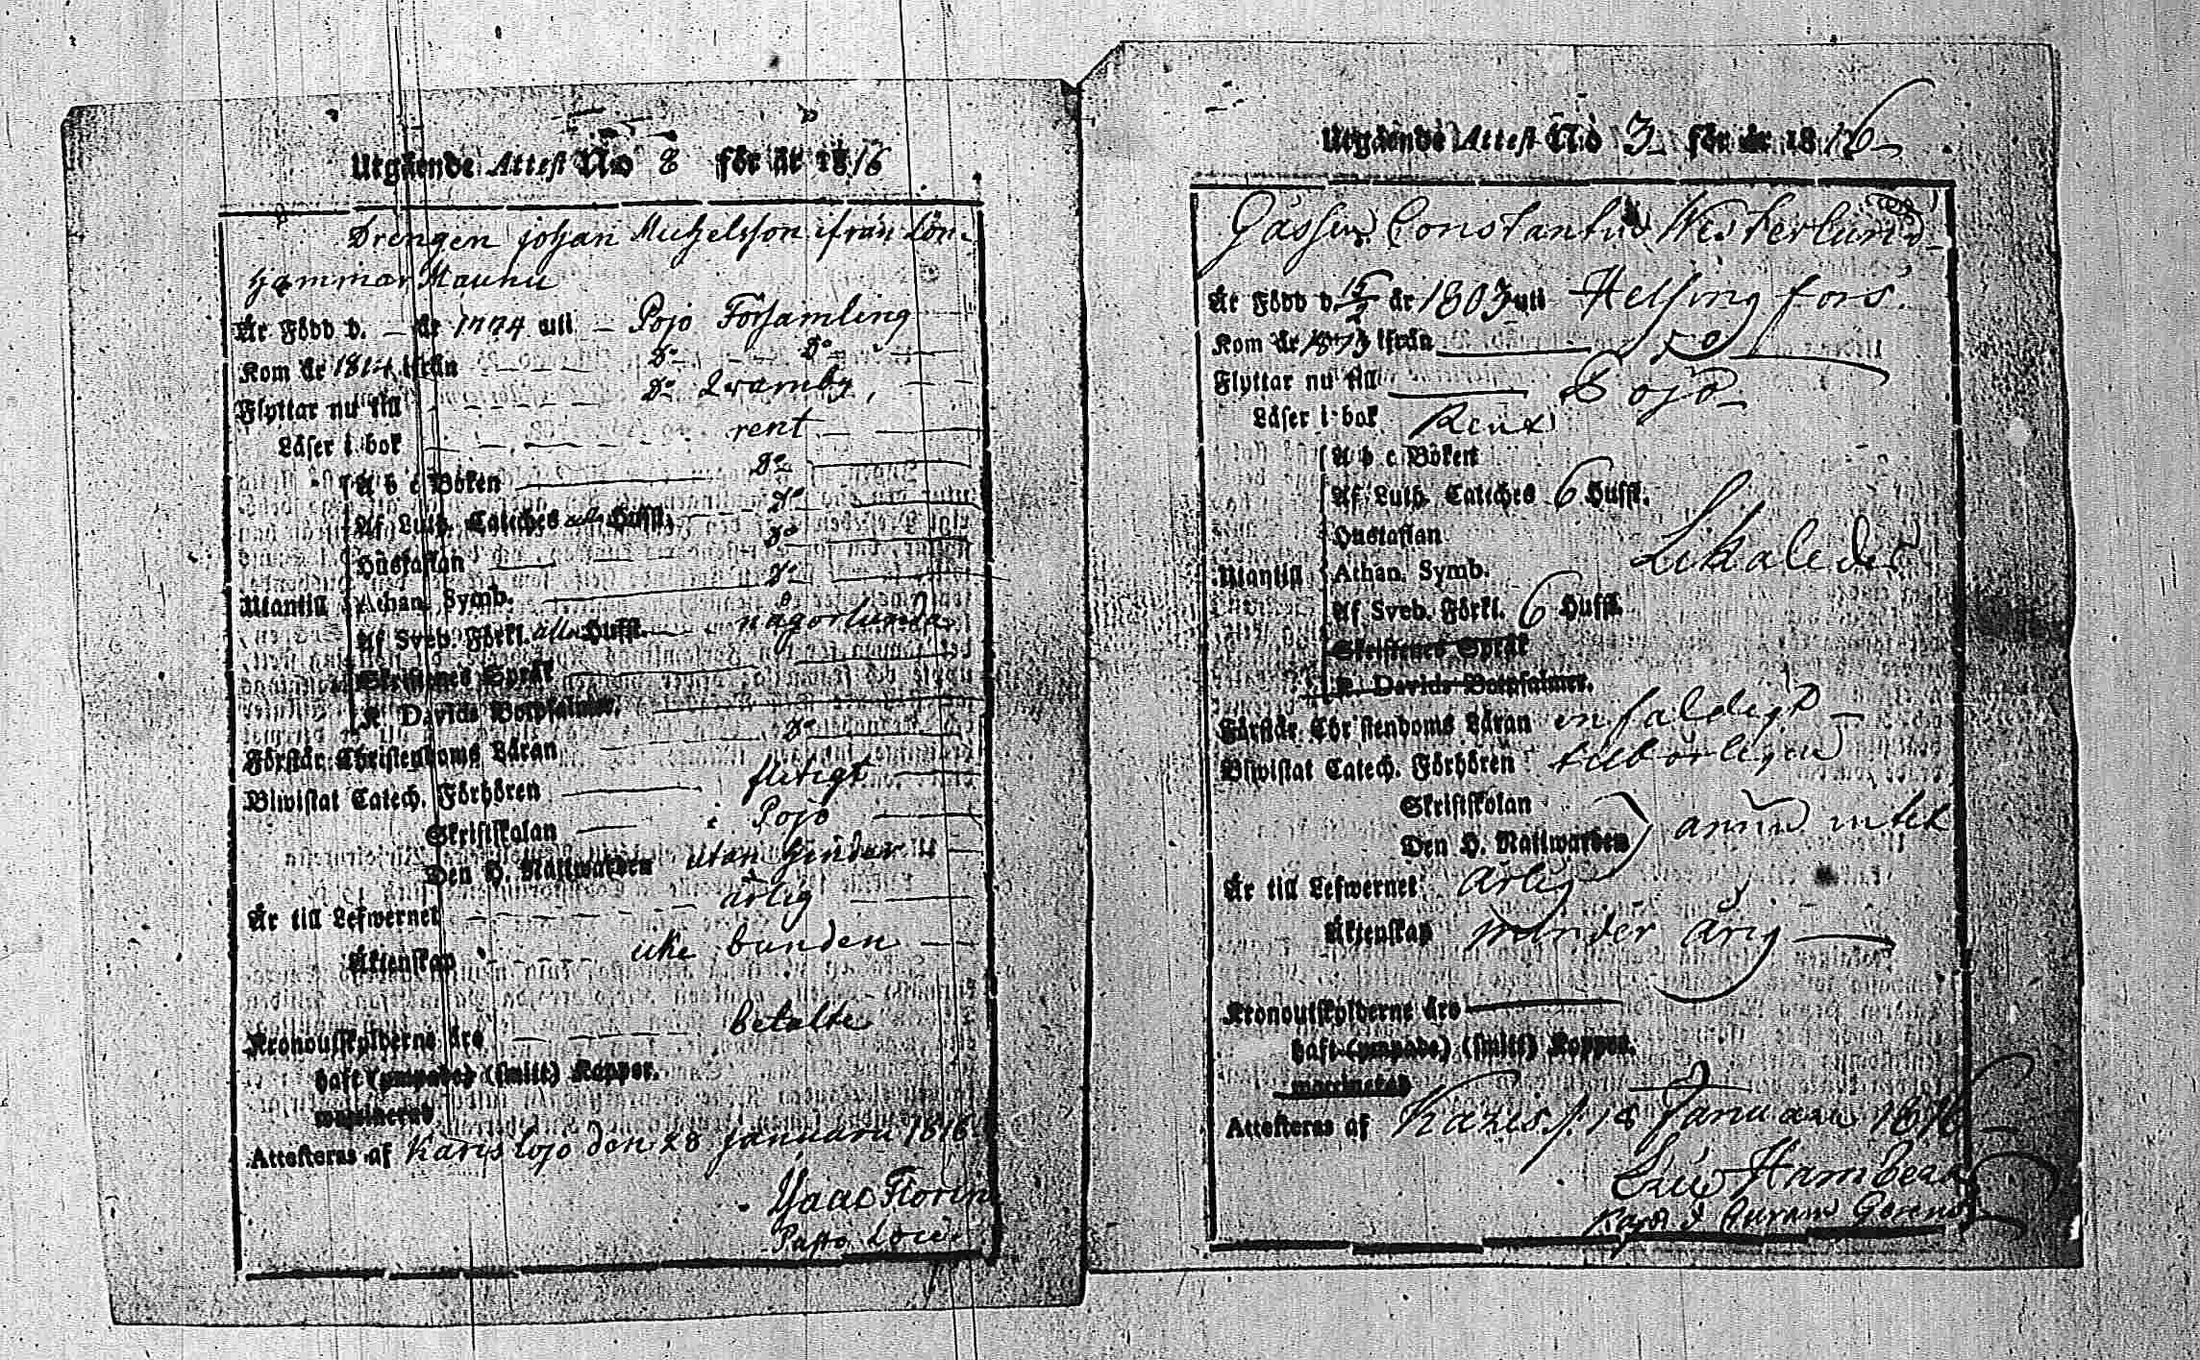 Utgående Attest No 8 för år 1816
Drengen johan Michelsson ifrån Lön-
hammar Maunu
Är Född d. — år 1774 uti — Pojo Församling
Kom år 1814 ifrån D:o D:o
Flyttar nu till D:o Qvarnby,
Läser i bok rent
A b c Boken D:o
Af Luth. Catiches alla Hufst. D:o
Hustaflan D:o
Utantill Athan. Symb. D:o
Af Sveb. Förkl. alla Hufst. någorlunda
Skriftenes Språk
K. Davids Botpsalmer.
Förstår Christendoms Läran D:o
Biwistat Catech. Förhören flitigt
Skriftskolan i Pojo
Den H. Nattwarden utan hinder
Är till Lefwernet ärlig
Äktenskap icke bunden
Kronoutskylderne äro betalte
haft (ympade) (smitt) Koppor.
waccinerad
Attesteras af Karislojo den 28 januarii 1816
Isaac Florin
Past. Loci
Utgående Attest No 3 för år 1816
Gässen Constantin Westerlund
Är Född d 15/2 år 1803 uti Helsingfors.
Kom år 1813 ifrån D:o
Flyttar nu till Pojo
Läser i bok Rent
A b c Boken
Af Luth. Catiches 6 Hufst.
Hustaflan
Utantill Athan. Symb. Likaledes
Af Sveb. Förkl. 6 Hufst.
Skriftenes Språk
K. Davids Botpsalmer.
Förstår Christendoms Läran enfaldigt
Biwistat Catech. Förhören tillbörligen
Skriftskolan
Den H. Nattwarden annu intet
Är till Lefwernet Ärlig
Äktenskap minder årig
Kronoutskylderne äro
haft (ympade) (smitt) Koppor.
waccinerad
Attesteras af Karis d. 18 Januarii 1816